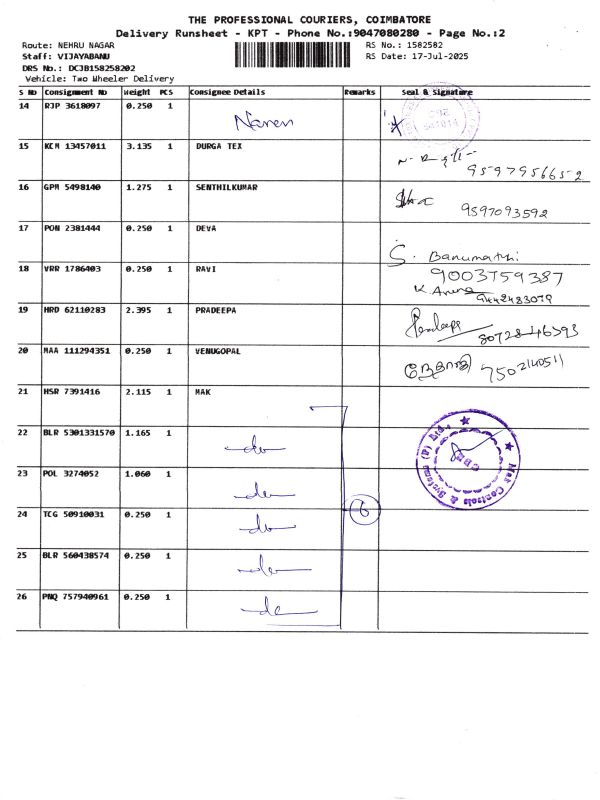 THE PROFESSIONAL COURIERS, COIMBATORE
Delivery Runsheet - KPT - Phone No.:9047080280 - Page No.:2
Route: NEHRU NAGAR RS No.: 1582582
Staff: VIJAYABANU RS Date: 17-Jul-2025
DRS No.: DCJB158258202
Vehicle: Two Wheeler Delivery
S No Consignment No Weight PCS Consignee Details Remarks Seal & Signature
14 RJP 3618097 0.250 1 Naren
15 KCM 13457011 3.135 1 DURGA TEX
9597956652
16 GPM 5498140 1.275 1 SENTHILKUMAR
9597093592
17 PON 2381444 0.250 1 DEVA
S. Banumathi
9003759387
18 VRR 1786403 0.250 1 RAVI
K. Aruna
9442483079
19 HRD 62110283 2.395 1 PRADEEPA
Pradeepa
8072846393
20 MAA 111294351 0.250 1 VENUGOPAL
7502140511
21 HSR 7391416 2.115 1 MAK
Mak Controls & Systems (P) Ltd.,
CBE
22 BLR 5301331570 1.165 1 do
23 POL 3274052 1.060 1 do
6
24 TCG 50910031 0.250 1 do
25 BLR 560438574 0.250 1 do
26 PNQ 757940961 0.250 1 do